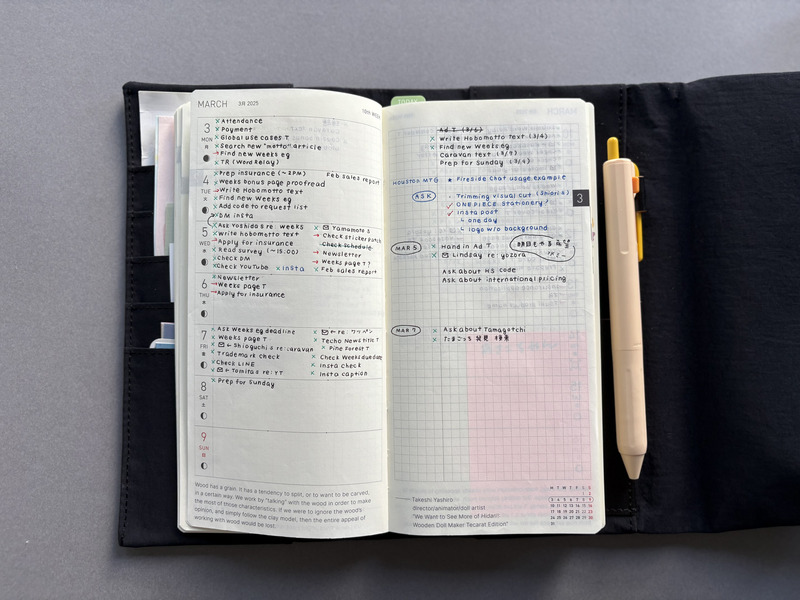 MARCH 3月 2025
3 MON 月
× Attendance
× Payment
× Global use cases T
× Search new "motto" article
→ Find new Weeks eg
× TR (Word Relay)
4 TUE 火
× Prep insurance (~2PM)
Feb sales report
× Weeks bonus page proofread
→ Write Hobomotto text
× Find new Weeks eg
× Add code to request list
DM insta
5 WED 水
× Ask Yoshida s re: weeks
× Write hobomotto text
→ Apply for insurance
× Read survey (~15:00)
× Check DM
× Check YouTube × insta
× Yamamoto s
→ Check sticker
Check Schedule
→ Newsletter
→ Weeks page T?
× Feb sales report
6 THU 木
× Newsletter
→ Weeks page T
→ Apply for insurance
7 FRI 金
× Ask Weeks eg deadline
× Weeks page T
× ← Shioguchi s re: caravan
× Trademark check
× Check LINE
× ← Tomita s re: YT
× ← re: ワッペン
× Techo News title T
× Pine Forest T
× Check Weeks due date
× Insta check
× Insta caption
8 SAT 土
× Prep for Sunday
9 SUN 日
Wood has a grain. It has a tendency to split, or to want to be carved,
in a certain way. We work by "talking" with the wood in order to make
the most of those characteristics. If we were to ignore the wood's
opinion, and simply follow the clay model, then the entire appeal of
working with wood would be lost.
TODAY
Ad T (3/6)
× Write Hobomotto text (3/4)
× Find new Weeks eg
Caravan text (3/7)
Prep for Sunday (3/4)
HOUSTON MTG ★ Fireside Chat usage example
3
ASK
· Trimming visual cut (Shiori s)
✓ ONE PIECE Stationery?
✓ Insta post
↳ one day
↳ logo w/o background
MAR 5
× Hand in Ad T
× Lindsay re: yozora
Ask about HS code
Ask about international pricing
MAR 7
× Ask about Tamagotchi
× たまごっち
Takeshi Yashiro
director/animator/doll artist
"We Want to See More of Hidari!
Wooden Doll Maker Tecarat Edition"
M T W T F S S
1 2
3 4 5 6 7 8 9
10 11 12 13 14 15 16
17 18 19 20 21 22 23
24 25 26 27 28 29 30
31